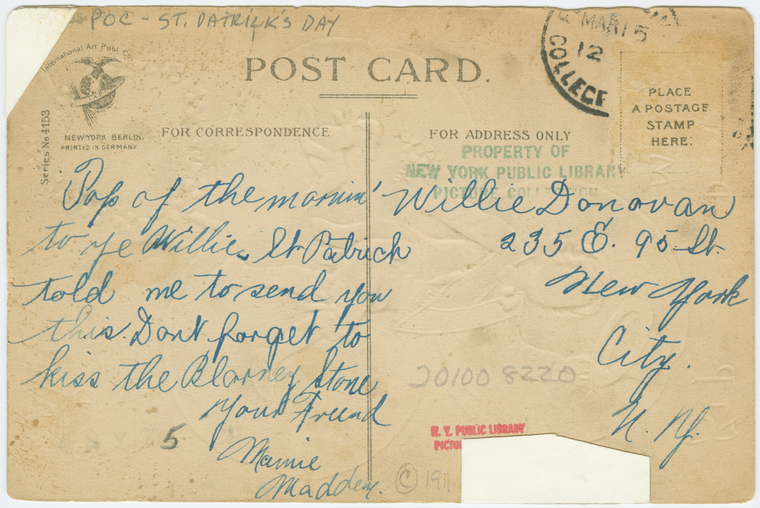 POC - ST. PATRICK'S DAY
International Art Publ. Co.
NEW YORK BERLIN.
PRINTED IN GERMANY
Series No 4153
POST CARD.
MAR 15
12
COLLEGE
PLACE
A POSTAGE
STAMP
HERE.
FOR CORRESPONDENCE
FOR ADDRESS ONLY
PROPERTY OF
NEW YORK PUBLIC LIBRARY
PICTURE COLLECTION
Top of the mornin'
to ye Willie. St. Patrick
told me to send you
this. Dont forget to
kiss the Blarney Stone
Your Friend
Mamie
Madden.
5
Willie Donovan
235 E. 95 St.
New York
City.
N. Y.
20100 8220
N. Y. PUBLIC LIBRARY
© 19